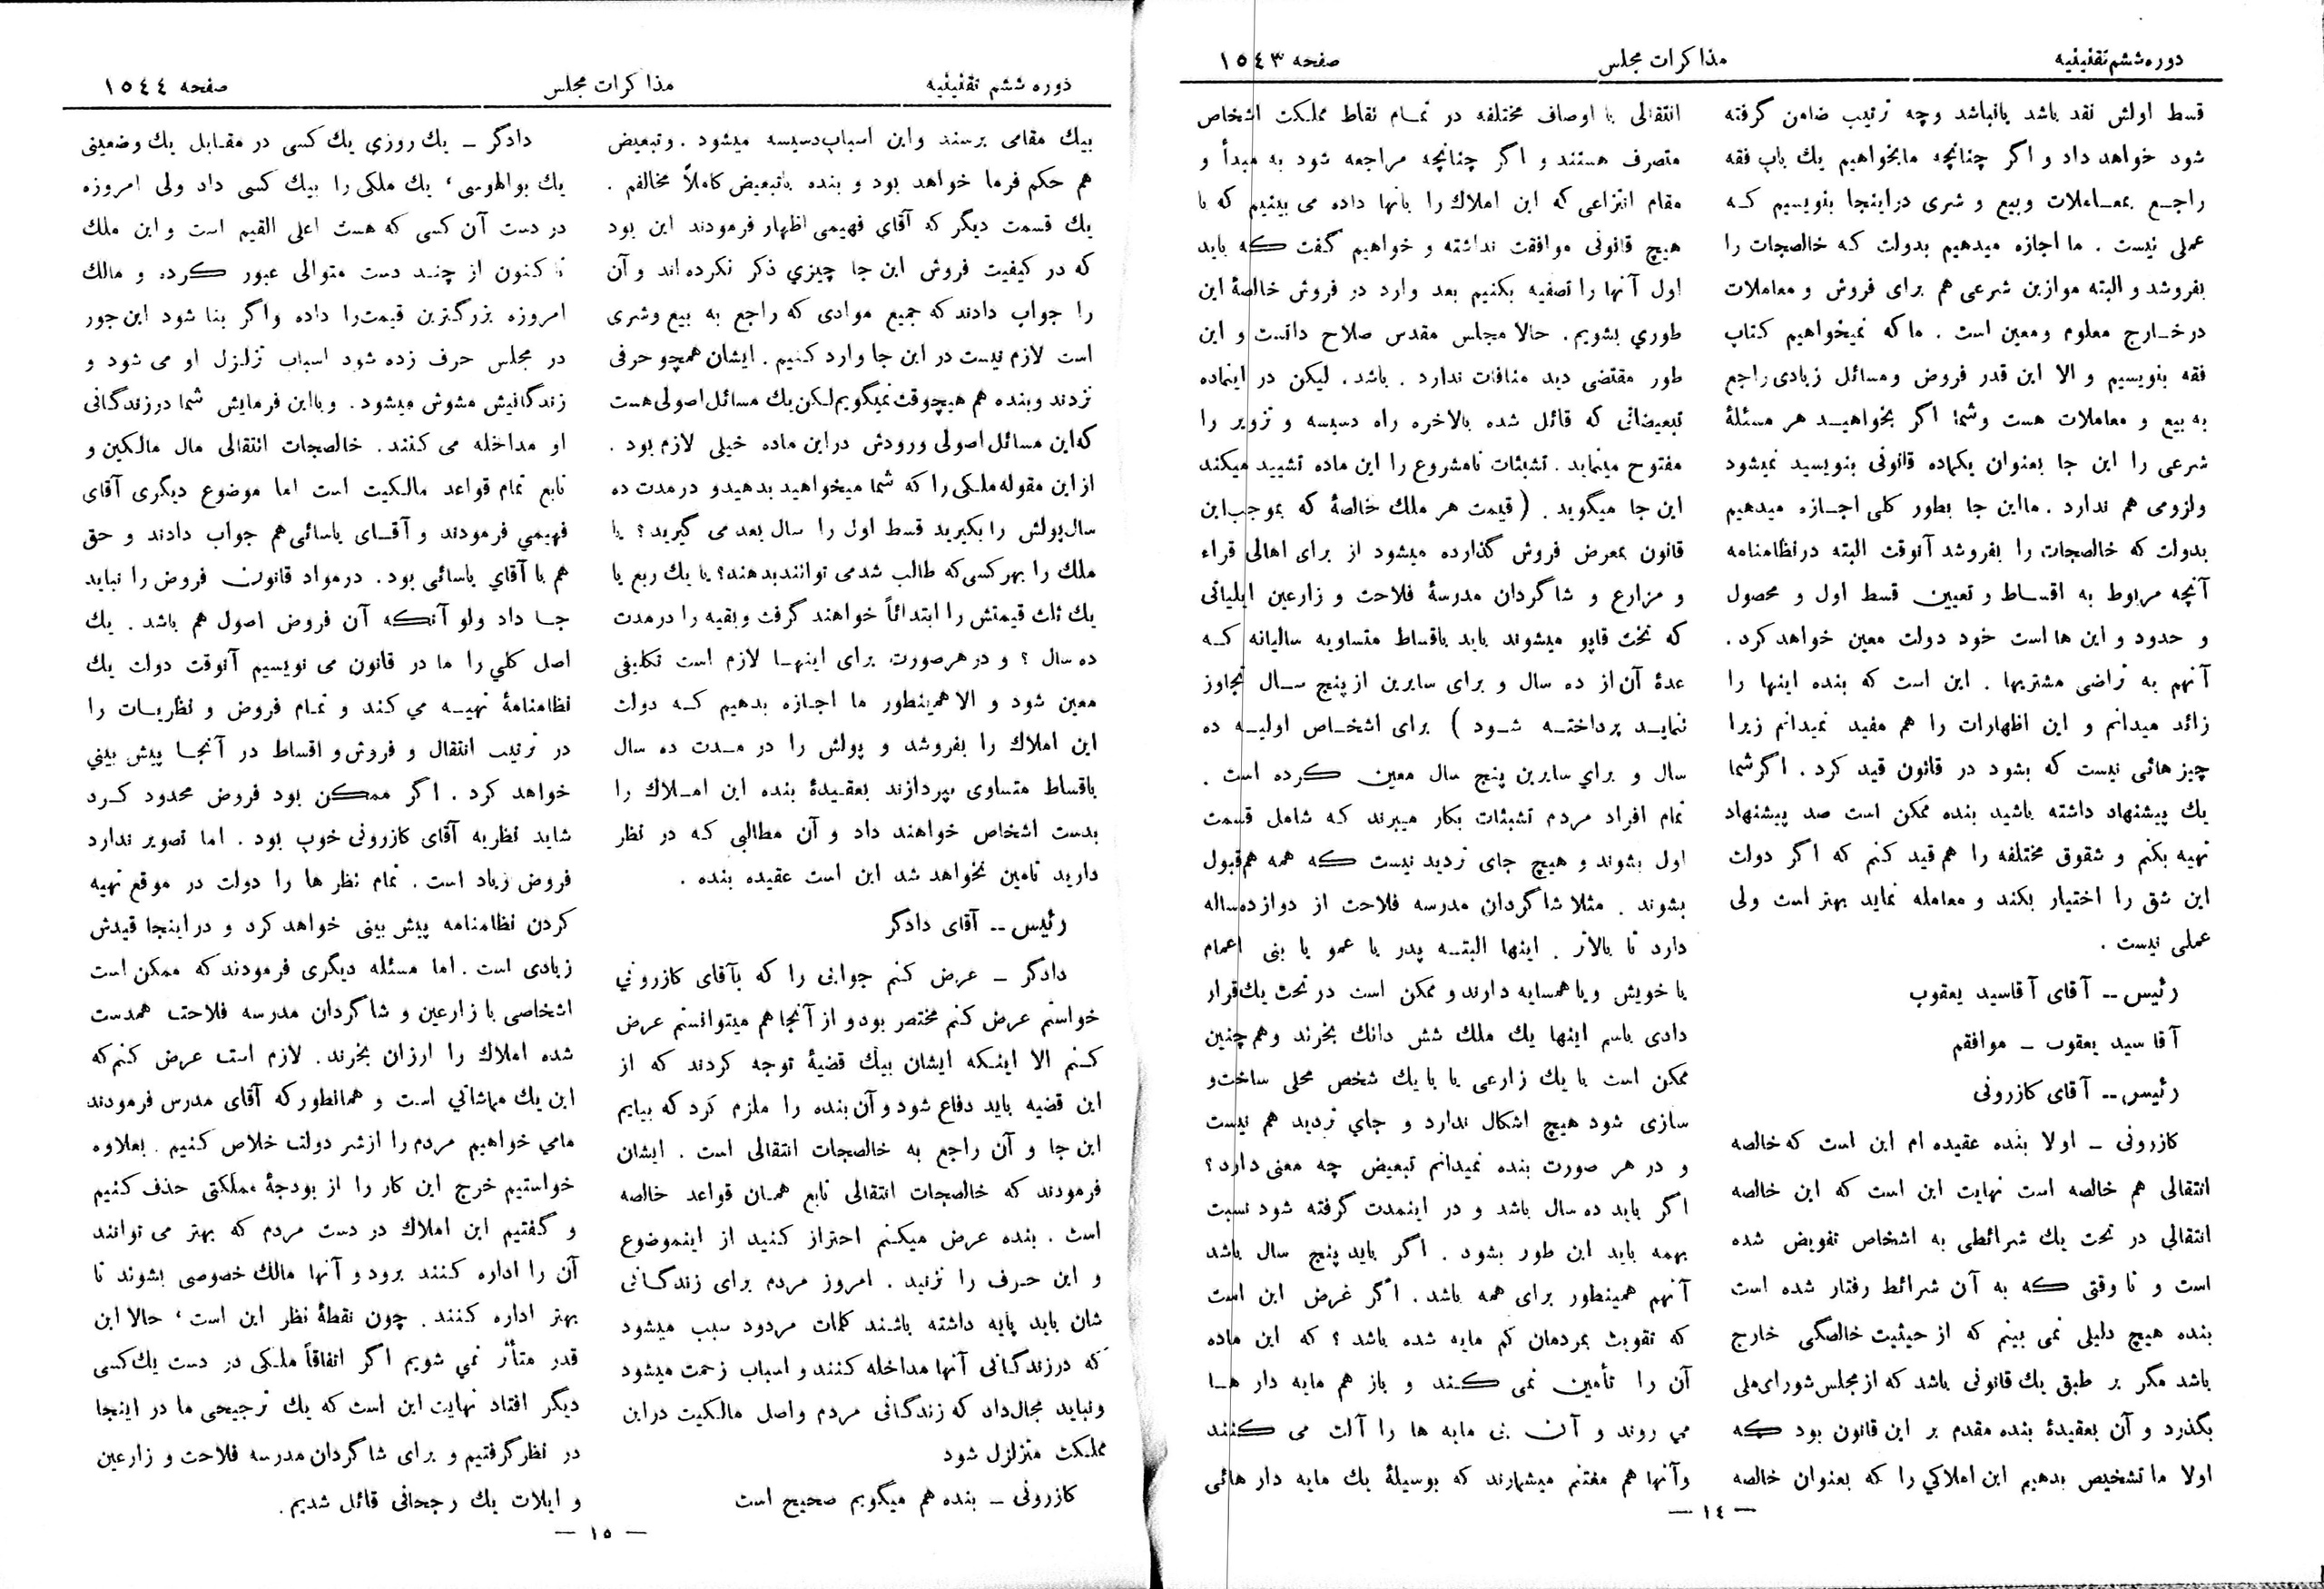 دوره ششم تقنینیه
مذاکرات مجلس
صفحه ١٥٤٣
قسط اولش نقد باشد یانباشد وچه ترتیب ضامن گرفته
شود خواهد داد و اگر چنانچه مابخواهیم یك باب فقه
راجـع بمعـاملات وبیع و شری دراینجا بنویسیم کـه
عملی نیست . ما اجازه میدهیم بدولت که خالصجات را
بفروشد و البته موازین شرعی هم برای فروش و معاملات
درخـارج معلوم ومعین است . ماکه نمیخواهیم کتاب
فقه بنویسیم و الا این قدر فروض ومسائل زیادی راجع
به بیع و معاملات هست وشما اگر بخواهیـد هر مسئلهٔ
شرعی را این جا بعنوان یکماده قانونی بنویسید نمیشود
ولزومی هم ندارد . مااین جا بطور کلی اجـازه میدهیم
بدولت که خالصجات را بفروشد آنوقت البته درنظامنامه
آنچه مربوط به اقسـاط و تعیین قسط اول و محصول
و حدود و این ها است خود دولت معین خواهد کرد .
آنهم به تراضی مشتریها . این است که بنده اینها را
زائد میدانم و این اظهارات را هم مفید نمیدانم زیرا
چیز هائی نیست که بشود در قانون قید کرد . اگرشما
یك پیشنهاد داشته باشید بنده ممکن است صد پیشنهاد
تهیه بکنم و شقوق مختلفه را هم قید کنم که اگر دولت
این شق را اختیار بکند و معامله نماید بهتر است ولی
عملی نیست .
رئیس -- آقای آقاسید یعقوب
آقا سید یعقوب ـ موافقم
رئیس -- آقای کازرونی
کازرونی ـ اولا بنده عقیده ام این است که خالصه
انتقالی هم خالصه است نهایت این است که این خالصه
انتقالی در تحت یك شرائطی به اشخاص تفویض شده
است و تا وقتی که به آن شرائط رفتار شده است
بنده هیچ دلیلی نمی بینم که از حیثیت خالصگی خارج
باشد مگر بر طبق یك قانونی باشد که از مجلس شورای ملی
بگذرد و آن بعقیدهٔ بنده مقدم بر این قانون بود که
اولا ما تشخیص بدهیم این املاکي را که بعنوان خالصه
انتقالی با اوصاف مختلفه در تمـام نقاط مملکت اشخاص
متصرف هستند و اگر چنانچه مراجعه شود به مبدأ و
مقام انتزاعی که این املاك را بآنها داده می بینیم که با
هیچ قانونی موافقت نداشته و خواهیم گفت که باید
اول آنها را تصفیه بکنیم بعد وارد در فروش خالصهٔ این
طوري بشویم. حالا مجلس مقدس صلاح دانست و این
طور مقتضی دید منافات ندارد . باشد. لیکن در اینماده
تبعیضاتی که قائل شده بالاخره راه دسیسه و تزویر را
مفتوح مینماید . تشبثات نامشروع را این ماده تشیید میکند
این جا میگوید . ( قیمت هر ملك خالصهٔ که بموجب این
قانون بمعرض فروش گذارده میشود از برای اهالی قراء
و مزارع و شاگردان مدرسهٔ فلاحت و زارعین ایلیاتی
که تخت قاپو میشوند باید باقساط متساویه سالیانه کـه
عدهٔ آن از ده سال و برای سایرین از پنج سـال تجاوز
ننمایـد پرداختـه شـود ) برای اشخـاص اولیـه ده
سال و براي سایرین پنج سال معین کرده است .
تمام افراد مردم تشبثات بکار میبرند که شامل قسمت
اول بشوند و هیچ جای تردید نیست که همه هم قبول
بشوند . مثلا شاگردان مدرسه فلاحت از دوازده ساله
دارد تا بالاتر . اینها البتـه پدر یا عمو یا بنی اعمام
یا خویش ویا همسایه دارند و ممکن است در تحت یك قرار
دادی باسم اینها یك ملك شش دانك بخرند وهم چنین
ممکن است با یك زارعی یا با یك شخص محلی ساخت و
سازی شود هیچ اشکال ندارد و جاي تردید هم نیست
و در هر صورت بنده نمیدانم تبعیض چه معنی دارد؟
اگر باید ده سال باشد و در اینمدت گرفته شود نسبت
بهمه باید این طور بشود . اگر باید پنج سال باشد
آنهم همینطور برای همه باشد . اگر غرض این است
که تقویت بمردمان کم مایه شده باشد ؟ که این ماده
آن را تأمین نمی کـند و باز هم مایه دار هـا
می روند و آن بی مایه ها را آلت می کنند
وآنها هم مغتنم میشمارند که بوسیلهٔ یك مایه دار هائی
— ١٤ —
دوره ششم تقنینیه
مذاکرات مجلس
صفحه ١٥٤٤
بیك مقامی برسند واین اسباب دسیسه میشود . وتبعیض
هم حکم فرما خواهد بود و بنده باتبعیض کاملاً مخالفم .
یك قسمت دیگر که آقاي فهیمی اظهار فرمودند این بود
که در کیفیت فروش این جا چیزي ذکر نکرده اند و آن
را جواب دادند که جمیع موادی که راجع به بیع وشری
است لازم نیست در این جا وارد کنیم . ایشان همچو حرفی
نزدند وبنده هم هیچوقت نمیگویم لکن یك مسائل اصولی هست
که این مسائل اصولی ورودش دراین ماده خیلی لازم بود .
از این مقوله ملکی را که شما میخواهید بدهید و در مدت ده
سال پولش را بگیرید قسط اول را سال بعد می گیرید ؟ یا
ملك را بهر کسی که طالب شد می توانند بدهند؟ یا یك ربع یا
یك ثلث قیمتش را ابتدائاً خواهند گرفت وبقیه را در مدت
ده سال ؟ و در هر صورت برای اینهـا لازم است تکلیفی
معین شود و الا همینطور ما اجـازه بدهیم کـه دولت
این املاك را بفروشد و پولش را در مـدت ده سال
باقساط متساوی بپردازند بعقیدهٔ بنده این امـلاك را
بدست اشخاص خواهند داد و آن مطالبی که در نظر
دارید تامین نخواهد شد این است عقیده بنده .
رئیس -- آقای دادگر
دادگر ـ عرض کنم جوابی را که بآقای کازروني
خواستم عرض کنم مختصر بود و از آنجا هم میتوانستم عرض
کـنم الا اینـکه ایشان بیك قضیهٔ توجه کردند که از
این قضیه باید دفاع شود و آن بنده را ملزم کرد که بیایم
این جا و آن راجع به خالصجات انتقالی است . ایشان
فرمودند که خالصجات انتقالی تابع همـان قواعد خالصه
است . بنده عرض میکنم احتراز کنید از اینموضوع
و این حـرف را نزنید . امروز مردم برای زندگـانی
شان باید پایه داشته باشند کلمات مردود سبب میشود
که درزندگـانی آنها مداخله کنند و اسباب زحمت میشود
ونباید مجال داد که زندگـانی مردم واصل مالکیت دراین
مملکت متزلزل شود
کازرونی ـ بنده هم میگویم صحیح است
دادگر ـ یك روزي یك کسی در مقـابل یك وضعیتی
یك بوالهوسی ، یك ملکی را بیك کسی داد ولی امروزه
در دست آن کسی که هست اعلی القیم است و این ملك
تا کنون از چنـد دست متوالی عبور کرده و مالك
امروزه بزرگترین قیمت را داده واگر بنا شود این جور
در مجلس حرف زده شود اسباب تزلزل او می شود و
زندگانیش مشوش میشود . وبااین فرمایش شما در زندگانی
او مداخله می کنند . خالصجات انتقالی مال مالکین و
تابع تمام قواعد مالکیت است اما موضوع دیگری آقای
فهیمي فرمودند و آقـای یاسائی هم جواب دادند و حق
هم با آقاي یاسائی بود . در مواد قانون فروض را نباید
جـا داد ولو آنکه آن فروض اصول هم باشد . یك
اصل کلي را ما در قانون می نویسیم آنوقت دولت یك
نظامنامهٔ تهیـه می کند و تمـام فروض و نظریـات را
در ترتیب انتقال و فروش و اقساط در آنجـا پیش بیني
خواهد کرد . اگر ممکن بود فروض محدود کـرد
شاید نظریه آقای کازرونی خوب بود . اما تصویر ندارد
فروض زیاد است . تمام نظر ها را دولت در موقع تهیه
کردن نظامنامه پیش بینی خواهد کرد و دراینجا قیدش
زیادی است . اما مسئله دیگری فرمودند که ممکن است
اشخاصی با زارعین و شاگردان مدرسه فلاحت همدست
شده املاك را ارزان بخرند. لازم است عرض کنم که
این یك مماشاتي است و همانطور که آقای مدرس فرمودند
مامي خواهیم مردم را ازشر دولت خلاص کنیم . بعلاوه
خواستیم خرج این کار را از بودجهٔ مملکتی حذف کنیم
و گفتیم این املاك در دست مردم که بهتر می توانند
آن را اداره کنند برود و آنها مالك خصوصی بشوند تا
بهتر اداره کنند . چون نقطهٔ نظر این است ، حالا این
قدر متأثر نمي شویم اگر اتفاقاً ملکی در دست یك کسی
دیگر افتاد نهایت این است که یك ترجیحی ما در اینجا
در نظر گرفتیم و برای شاگردان مدرسه فلاحت و زارعین
و ایلات یك رجحانی قائل شدیم .
— ١٥ —